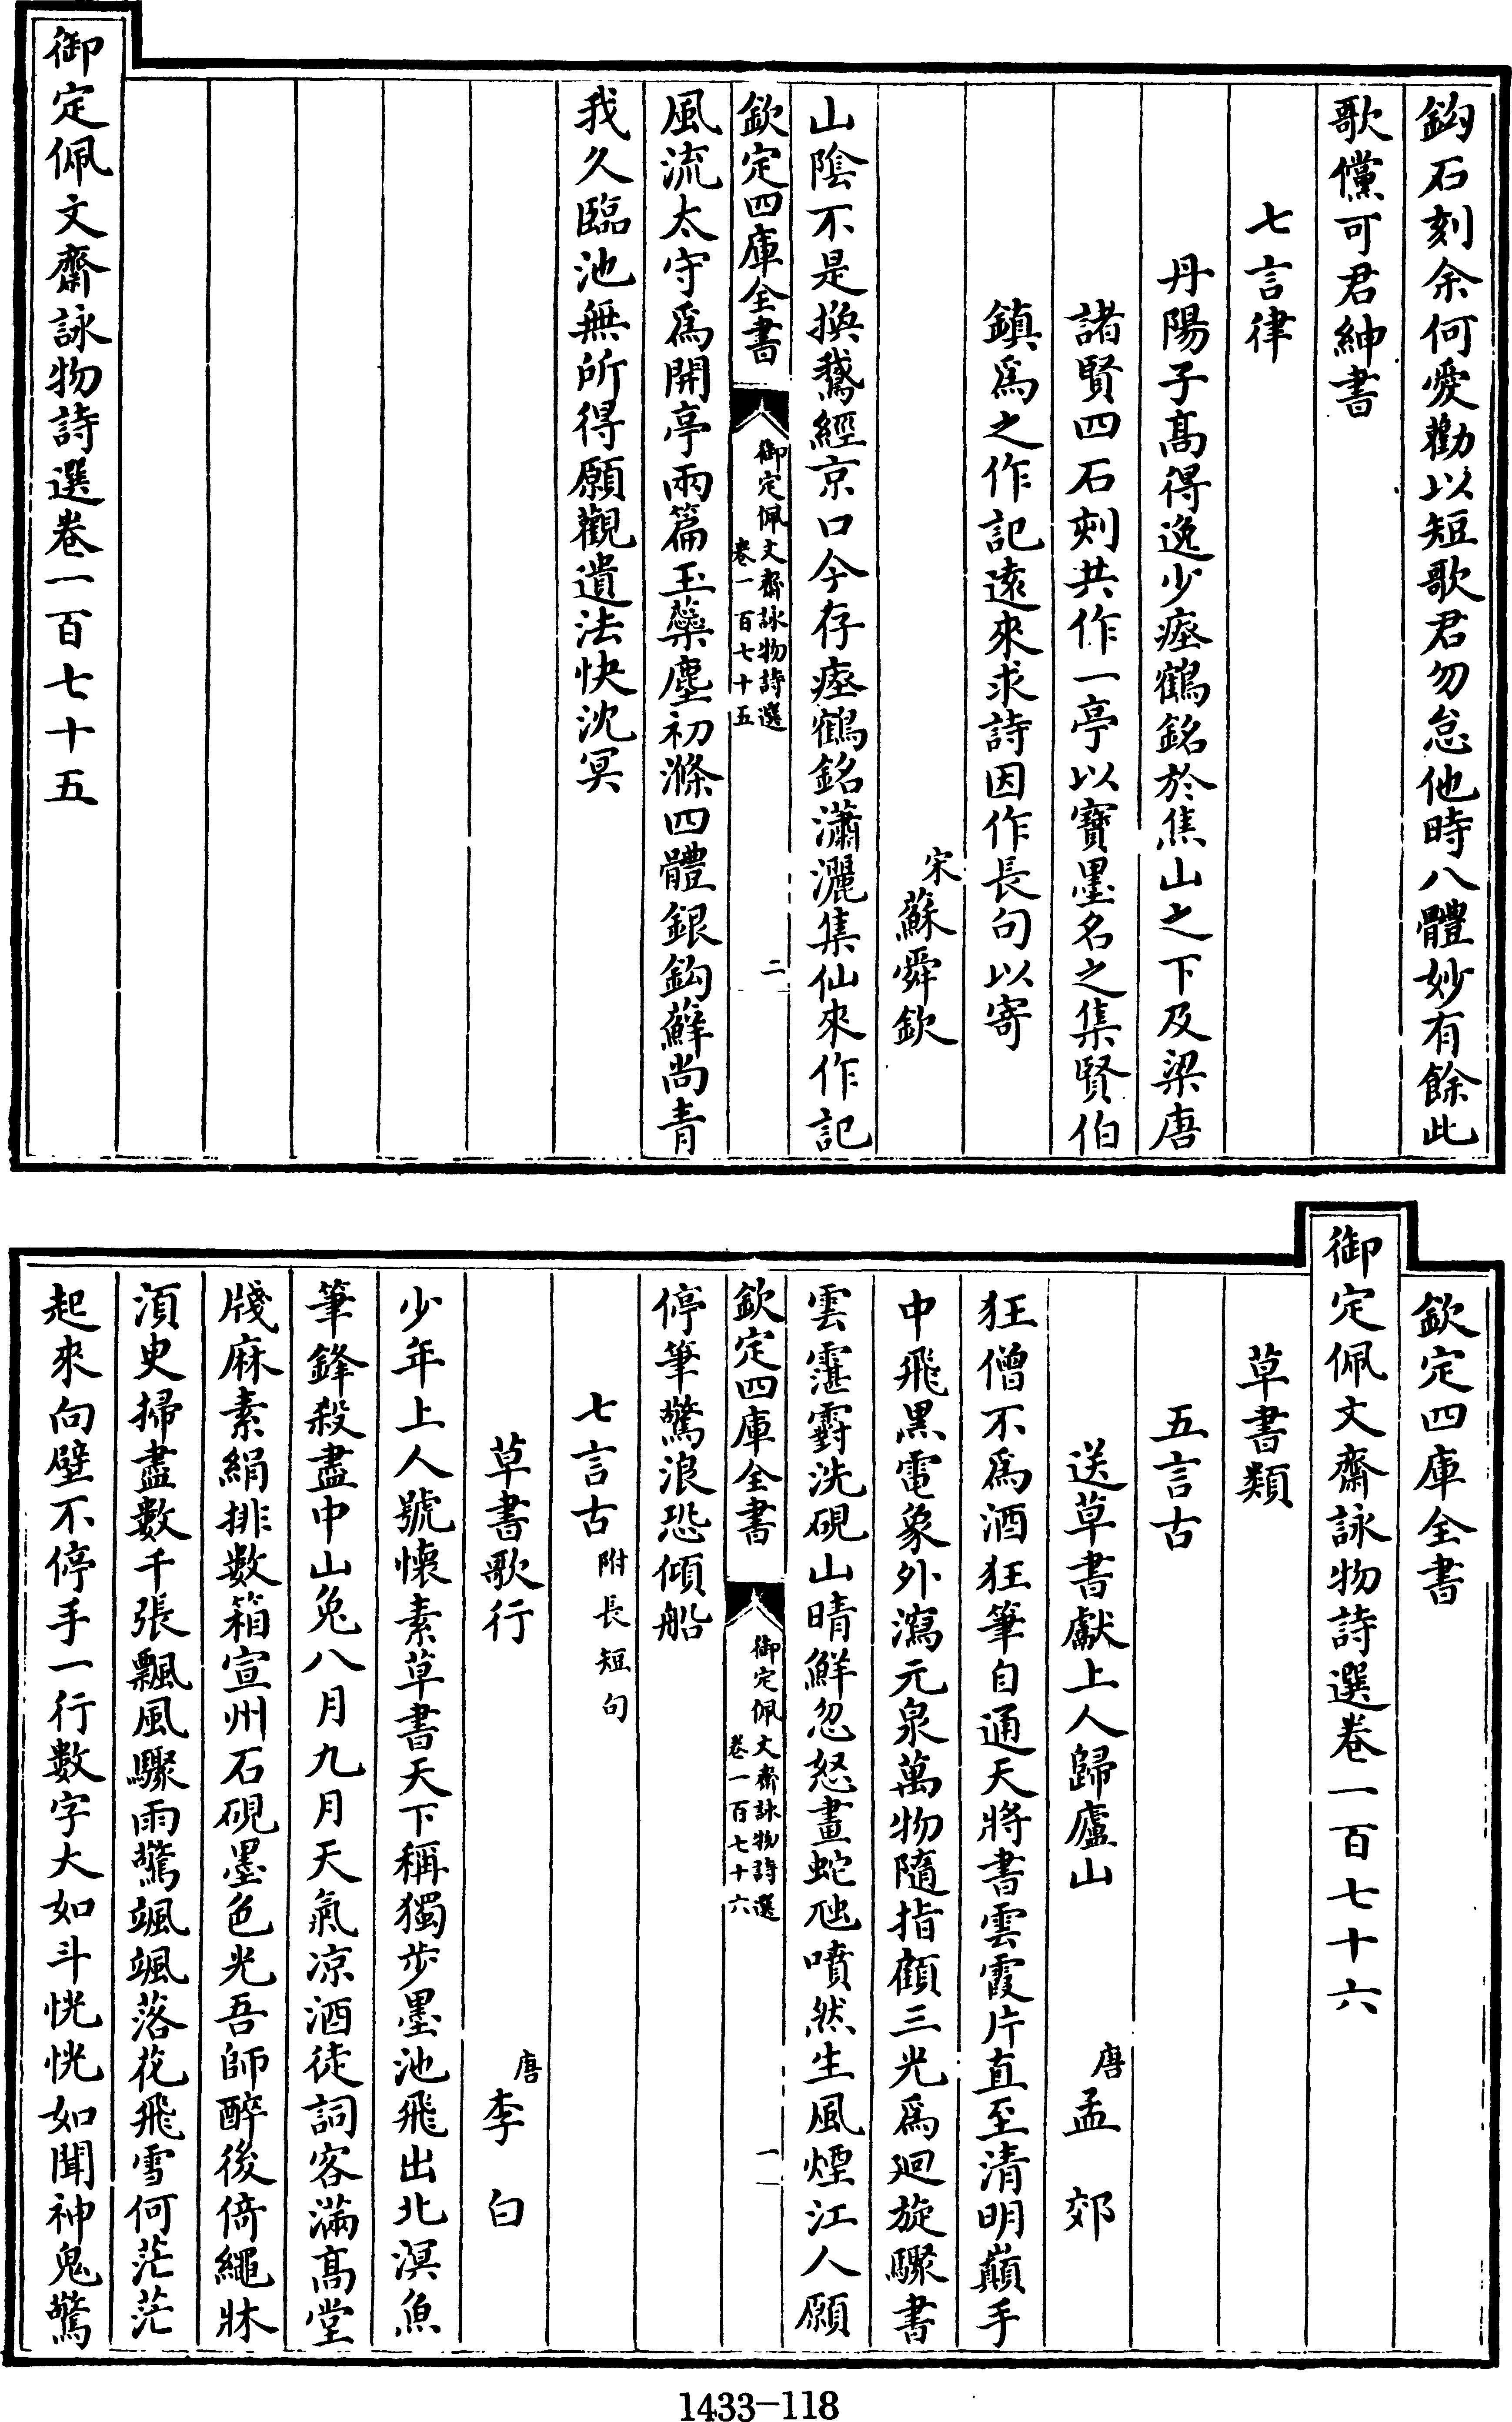 鈎石刻余何愛勸以短歌君勿怠他時八體妙有餘此
歌儻可君紳書
七言律
丹陽子髙得逸少瘞鶴銘於焦山之下及梁唐
諸賢四石刻共作一亭以寳墨名之集賢伯
鎮爲之作記逺來求詩因作長句以寄
宋蘇舜欽
山隂不是換鵞經京口今存瘞鶴銘瀟灑集仙來作記
欽定四庫全書
御定佩文齋詠物詩選
卷一百七十五
二
風流太守爲開亭兩篇玉蘂塵初滌四體銀鈎蘚尚青
我久臨池無所得願觀遺法快沈冥
御定佩文齋詠物詩選卷一百七十五
欽定四庫全書
御定佩文齋詠物詩選卷一百七十六
草書類
五言古
送草書獻上人歸廬山
唐孟郊
狂僧不爲酒狂筆自通天將書雲霞片直至清明巔手
中飛黒電象外瀉元泉萬物隨指顧三光爲迴旋驟書
雲霮䨴洗硯山晴鮮忽怒畫蛇虺噴然生風煙江人願
欽定四庫全書
御定佩文齋詠物詩選
卷一百七十六
一
停筆驚浪恐傾船
七言古附長短句
草書歌行
唐李白
少年上人號懷素草書天下稱獨步墨池飛出北溟魚
筆鋒殺盡中山兔八月九月天氣凉酒徒詞客滿髙堂
牋麻素絹排數箱宣州石硯墨色光吾師醉後倚繩牀
湏史掃盡數千張飄風驟雨驚颯颯落花飛雪何茫茫
起來向壁不停手一行數字大如斗恍恍如聞神鬼驚
1433-118